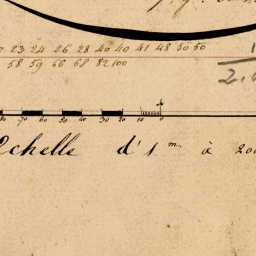 23 24 26 28 40 40 41 48 50 50
58 59 66 68 82 100
70 60 50 40 30 20 10 0
Echelle d'1 m. à 200